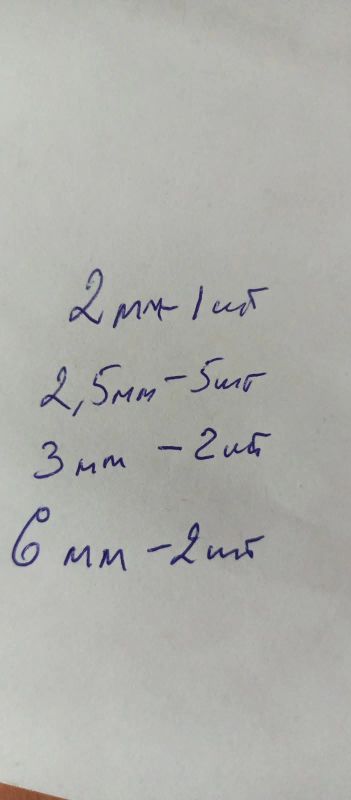 2мм-1шт
2,5мм-5шт
3мм -2шт
6 мм -2шт